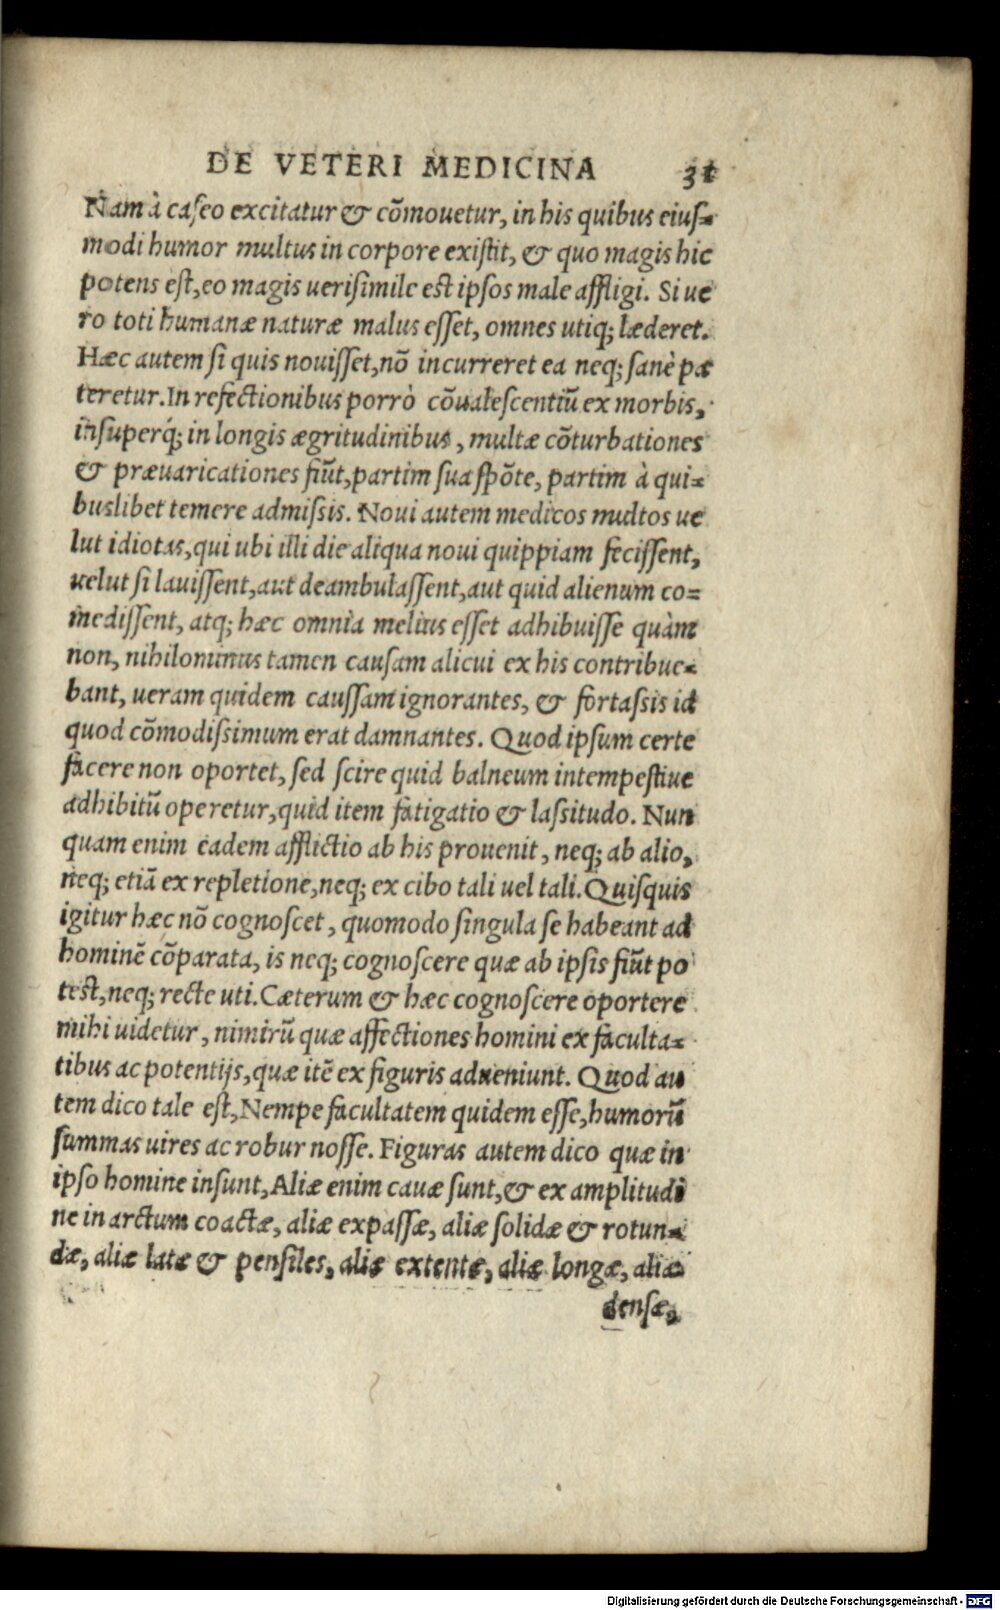 DE VETERI MEDICINA 31
Nam à caſeo excitatur & cõmouetur, in his quibus eiuſ⸗
modi humor multus in corpore exiſtit, & quo magis hic
potens eſt, eo magis ueriſimile eſt ipſos male affligi. Si ue
ro toti humanæ naturæ malus eſſet, omnes utiq; læderet.
Hæc autem ſi quis nouiſſet, nõ incurreret ea neq; ſanè pa
teretur. In refectionibus porrò cõualeſcentiũ ex morbis,
inſuperq́; in longis ægritudinibus, multæ cõturbationes
& præuaricationes fiũt, partim ſua ſpõte, partim à qui⸗
buslibet temere admiſsis. Noui autem medicos multos ue
lut idiotas, qui ubi illi die aliqua noui quippiam feciſſent,
uelut ſi lauiſſent, aut deambulaſſent, aut quid alienum co⸗
mediſſent, atq; hæc omnia melius eſſet adhibuiſſe quàm
non, nihilominus tamen cauſam alicui ex his contribue⸗
bant, ueram quidem cauſſam ignorantes, & fortaſsis id
quod cõmodiſsimum erat damnantes. Quod ipſum certe
facere non oportet, ſed ſcire quid balneum intempeſtiue
adhibitũ operetur, quid item fatigatio & laſsitudo. Nun
quam enim eadem afflictio ab his prouenit, neq; ab alio,
neq; etiã ex repletione, neq; ex cibo tali uel tali. Quiſquis
igitur hæc nõ cognoſcet, quomodo ſingula ſe habeant ad
hominẽ cõparata, is neq; cognoſcere quæ ab ipſis fiũt po
teſt, neq; recte uti. Cæterum & hæc cognoſcere oportere
mihi uidetur, nimirũ quæ affectiones homini ex faculta⸗
tibus ac potentijs, quæ itẽ ex figuris adueniunt. Quod au
tem dico tale eſt, Nempe facultatem quidem eſſe, humorũ
ſummas uires ac robur noſſe. Figuras autem dico quæ in
ipſo homine inſunt, Aliæ enim cauæ ſunt, & ex amplitudi
ne in arctum coactæ, aliæ expaſſæ, aliæ ſolidæ & rotun⸗
dæ, aliæ latæ & penſiles, aliæ extentæ, aliæ longæ, aliæ
denſæ,
Digitalisierung gefördert durch die Deutsche Forschungsgemeinschaft - DFG